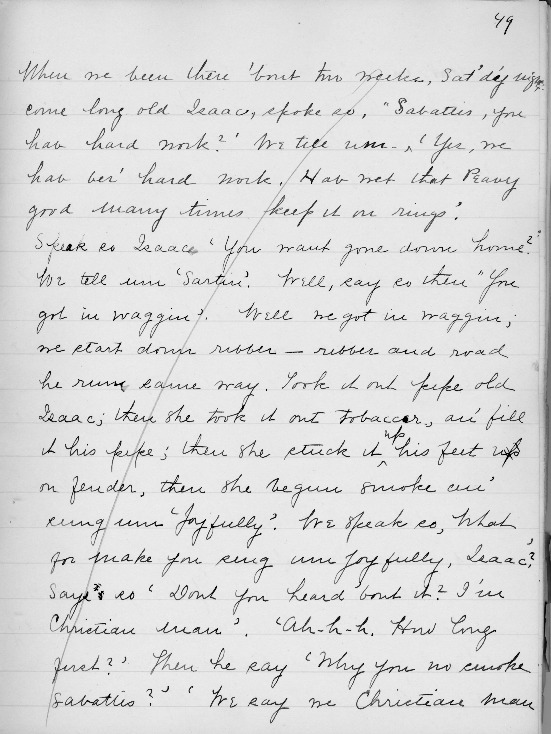 49
When we been there 'bout two weeks, Sat'd'y night
come long old Isaac, spoke so, "Sabattis, you
hav hard work?' We tell um - 'Yes, we
hav ber' hard work. Hav wet that Peavy
good many times keep it on rings'.
Speak so Isaac 'You want gone down home?"
We tell um 'Sartin'. Well, say so then "You
got in waggin'. Well we got in waggin;
we start down ribber — ribber and road
he run same way. Took it out pipe old
Isaac; then she took it out tobaccer, an' fill
it his pipe; then she stuck it up his feet
on fender, then she begun smoke an'
sung um 'Joyfully'. We speak so, What
for make you sing um Joyfully, Isaac?'
Says so 'Dont you heard 'bout it? I'm
Christian man'. 'Ah-h-h. How long
first?' Then he say 'Why you no smoke
Sabattis?' 'We say we Christian man